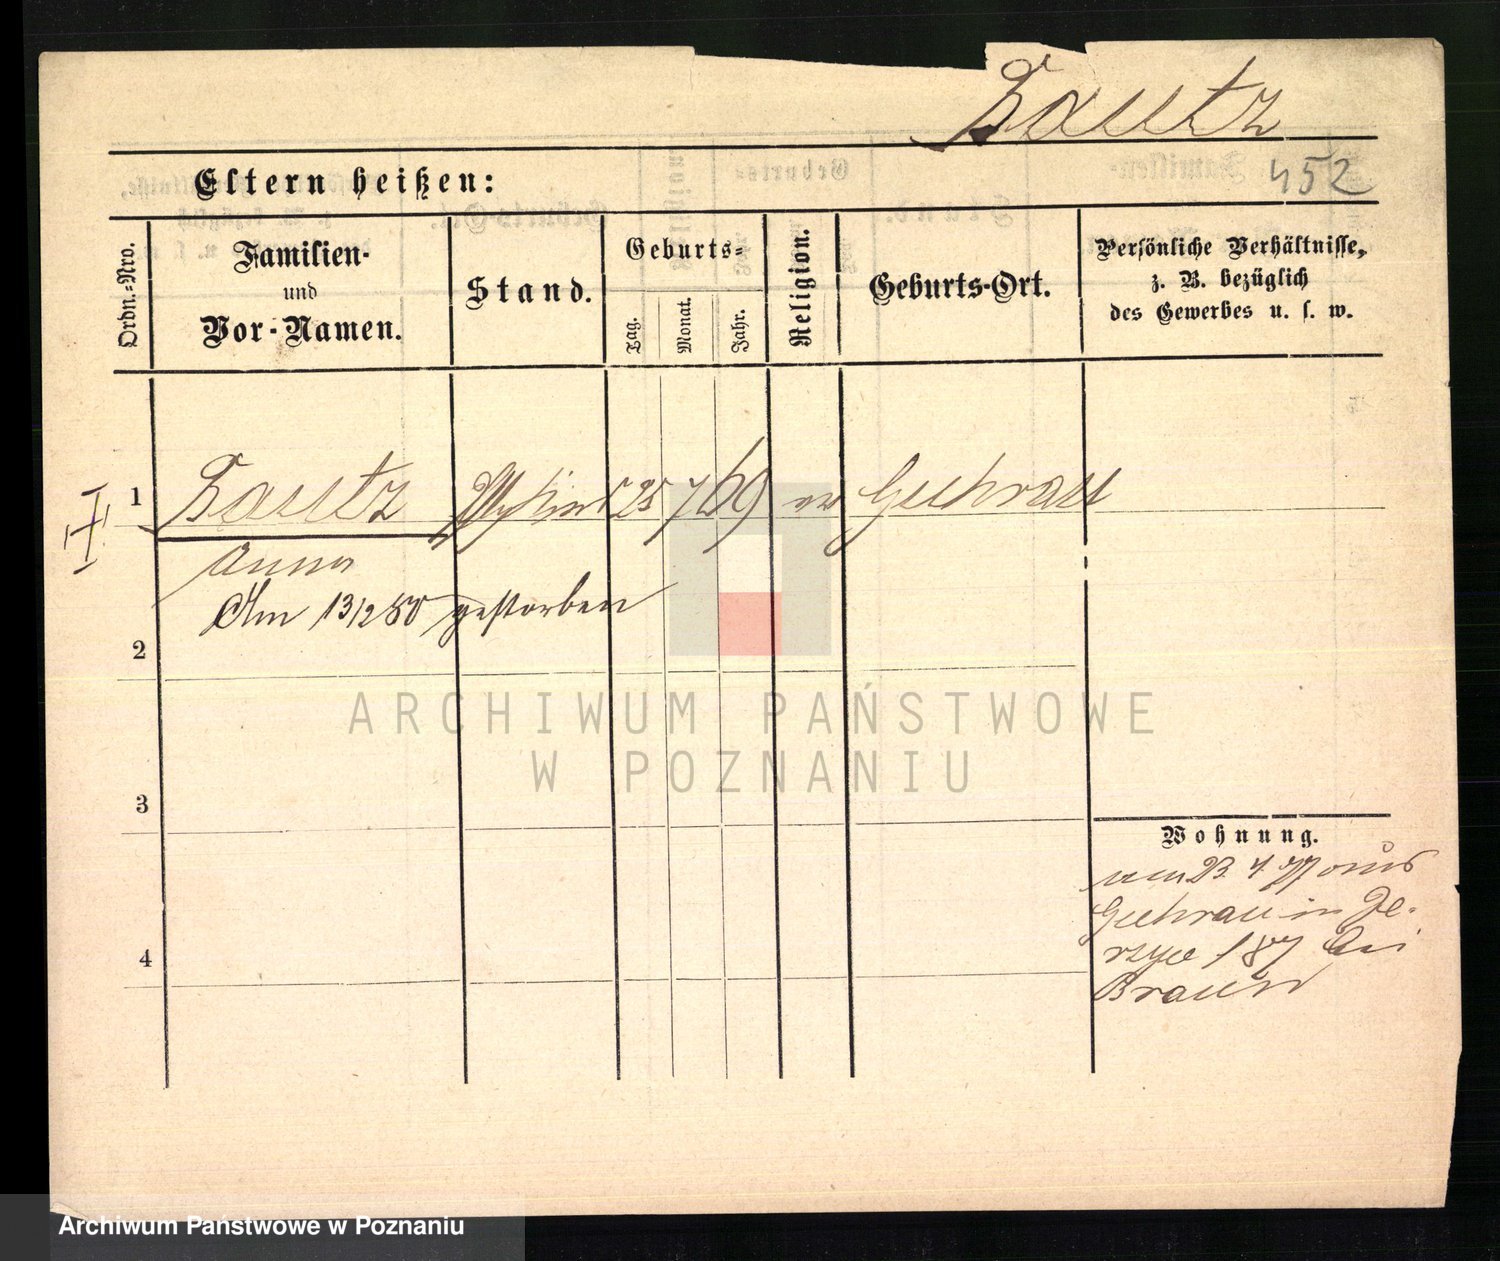 Lautz
Eltern heißen: 452
Ordn.-Nro.
Familien-
und
Vor-Namen.
Stand.
Geburts-
Tag.
Monat.
Jahr.
Religion.
Geburts-Ort.
Persönliche Verhältnisse,
z. B. bezüglich
des Gewerbes u. s. w.
1 Lautz 25 7 69 ev Guhrau
Anna
Am 13/2 80 gestorben
2
3
4
Wohnung.
23 4 77 aus
Guhrau in Je-
rzyce 187 bei
Braun
ARCHIWUM PAŃSTWOWE
W POZNANIU
Archiwum Państwowe w Poznaniu